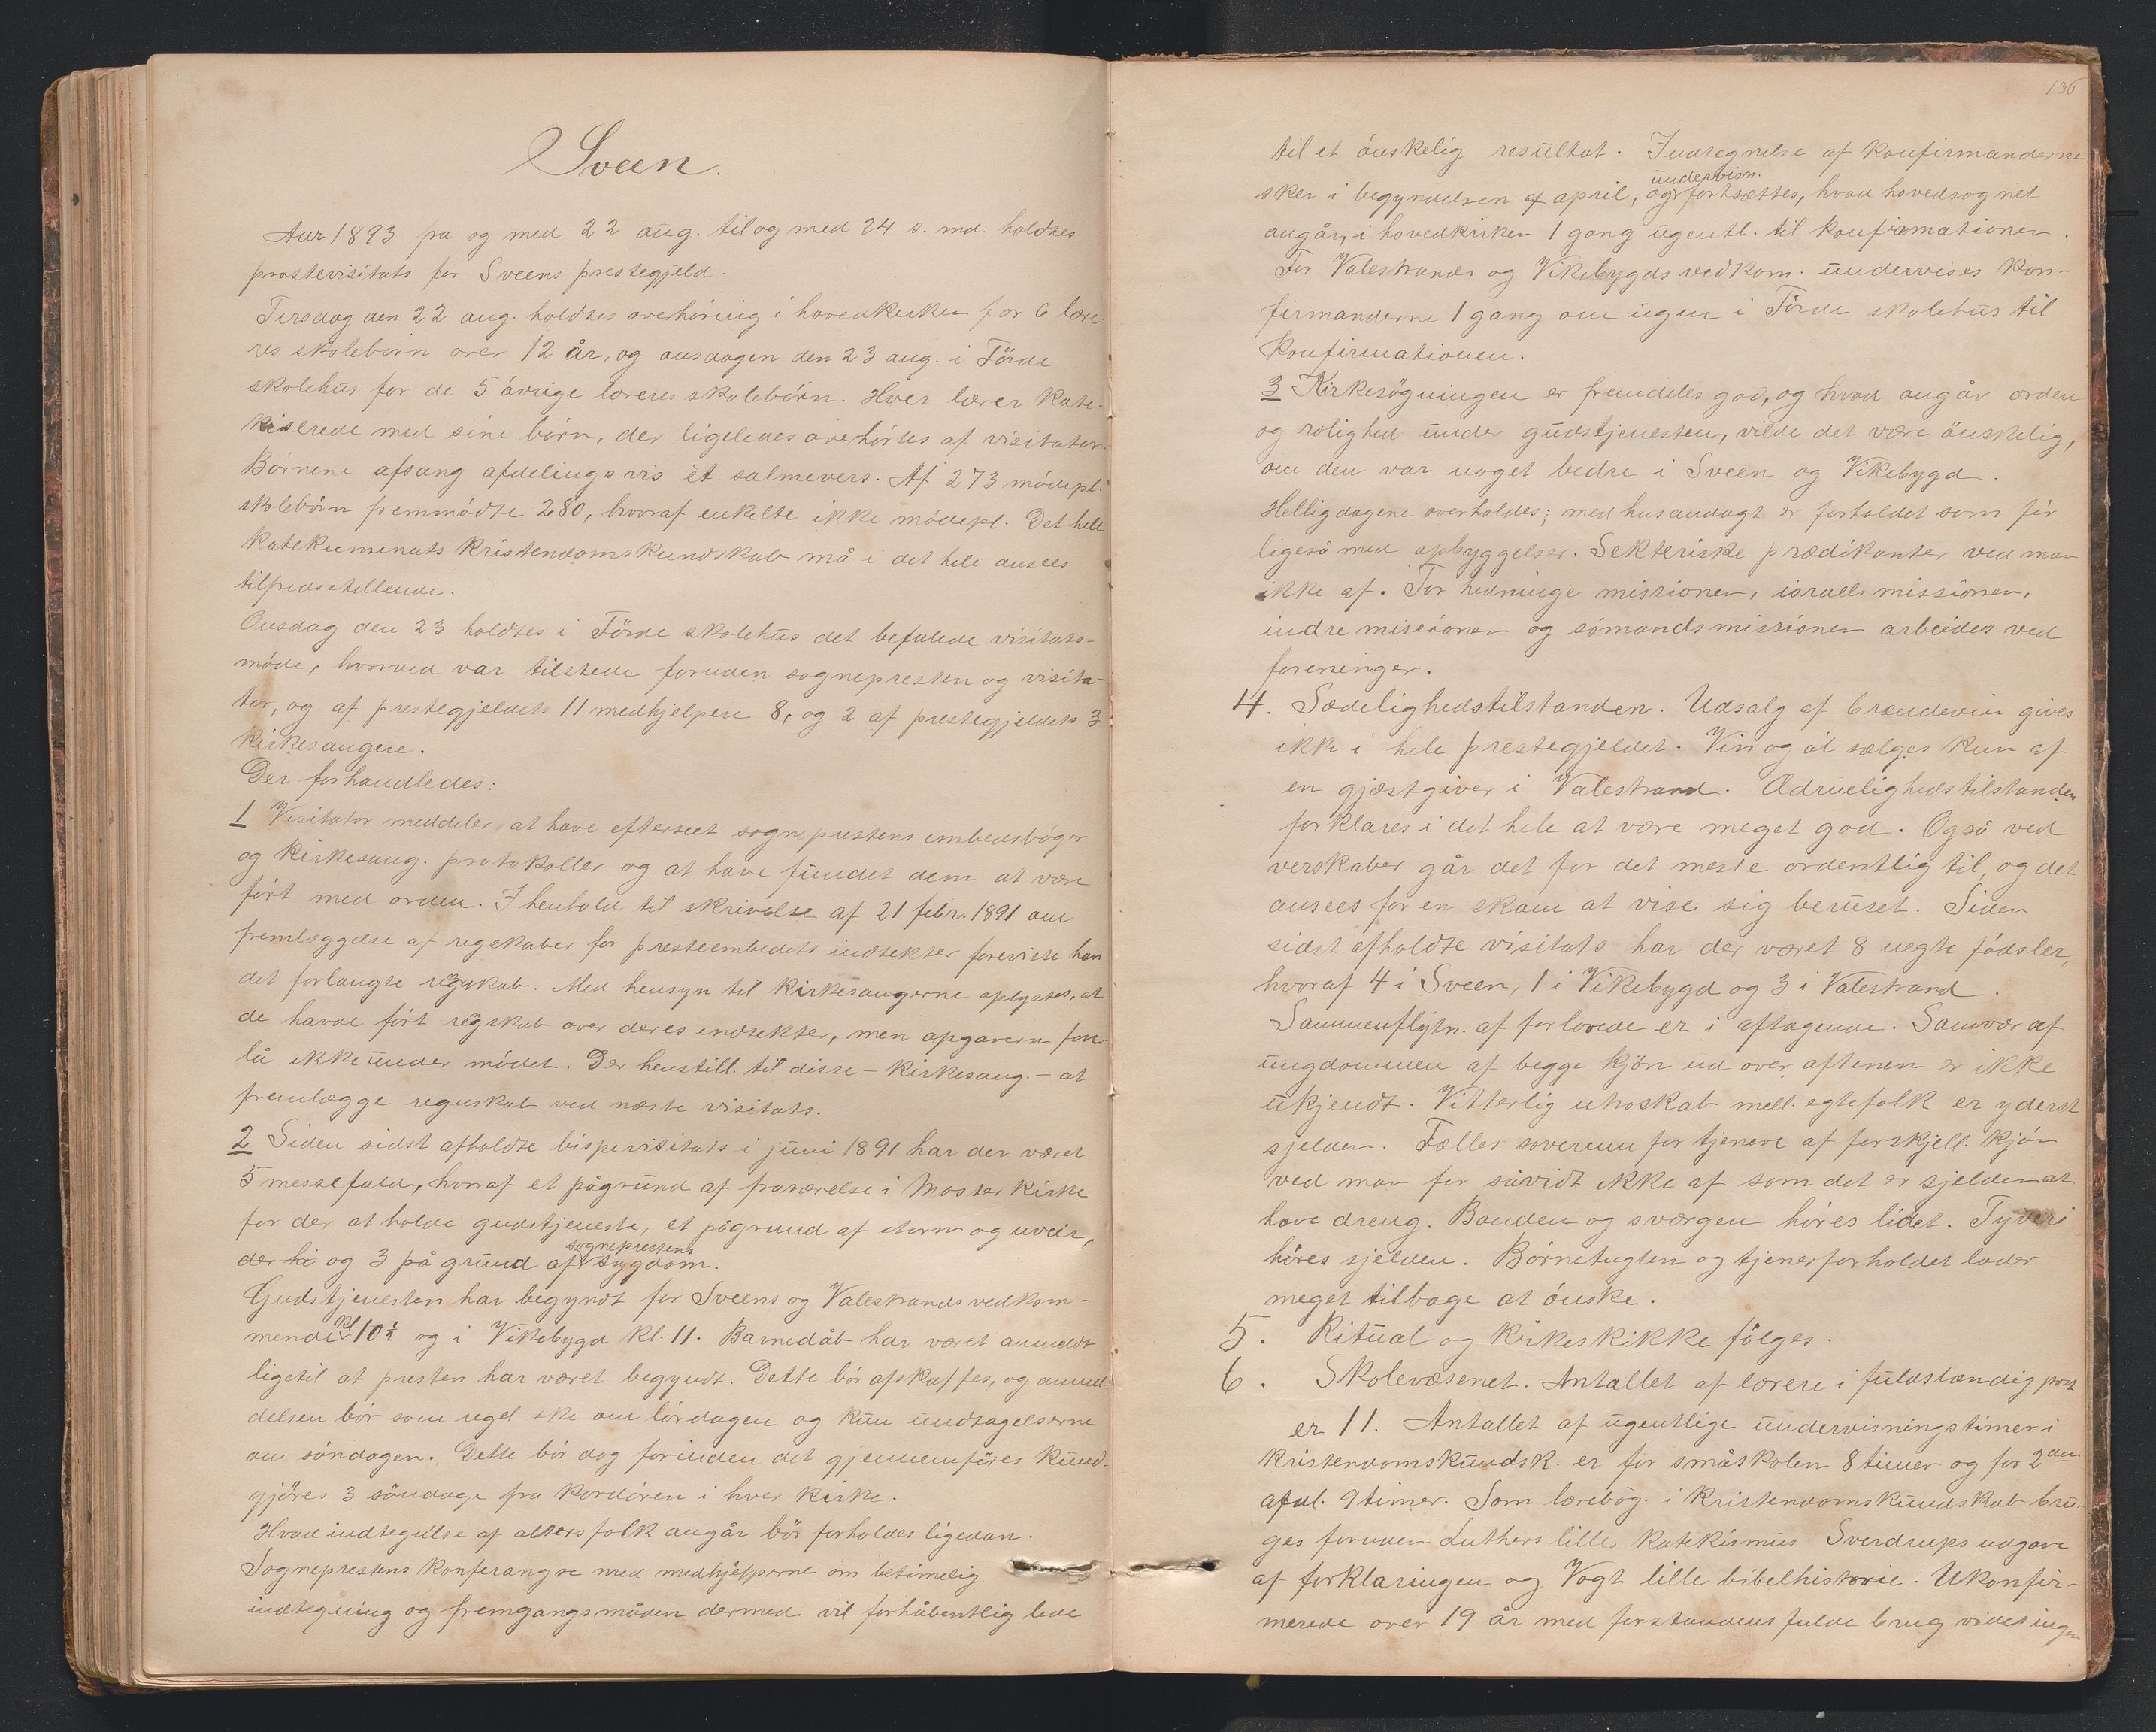 Sveen.
Aar 1893 fra og med 22 aug. til og med 24 s. md. holdtes
prostevisitats for Sveens prestegjeld.
Tirsdag den 22 aug. holdtes overhøring i hovedkirken for 6 lære-
res skolebørn over 12 år, og onsdagen den 23 aug. i Förde
skolehus for de 5 övrige læreres skolebörn. Hver lærer kate-
kiserede med sine börn, der ligeledes overhörtes af visitator.
Börnene afsang afdelingsvis et salmevers. Af 273 mödepl.
skolebörn fremmödte 280, hvoraf enkelte ikke mödepl. Det hele
katekumenats kristendomskundskab må i det hele ansees
tilfredsstillende.
Onsdag den 23 holdtes i Förde skolehus det befalede visitats-
möde, hvorved var tilstede foruden sognepresten og visita-
tor, og af prestegjeldets 11 medhjelpere 8, og 2 af prestegjeldets 3
kirkesangere.
Der forhandledes:
1 Visitator meddeler, at have efterseet sogneprestens embedsböger
og kirkesang. protokoller og at have fundet dem at være
fört med orden. I henhold til skrivelse af 21 febr. 1891 om
fremlæggelse af regskaber for presteembedets indtekter foreviste han
det forlangte regskab. Med hensyn til kirkesangerne oplystes, at
de havde fört regskab over deres indtekter, men opgaven fore-
lå ikke under mödet. Der henstill. til disse - kirkesang. - at
fremlægge regnskab ved næste visitats.
2 Siden sidst afholdte bispevisitats i juni 1891 har der været
5 messefald, hvoraf et pågrund af fraværelse i Moster kirke
for der at holde gudstjeneste, et pågrund af storm og uveir,
der hi og 3 på grund af sogneprestens sygdom.
Gudstjenesten har begyndt for Sveens og Valestrands vedkom-
mende kl. 10½ og i Vikebygd kl. 11. Barnedåb har været anmeldt
ligetil at presten har været begyndt. Dette bör afskaffes, og anmel-
delsen bör som regel ske om lördagen og kun undtagelserne
om söndagen. Dette bör dog forinden det gjennemföres kund-
gjöres 3 söndage fra kordören i hver kirke.
Hvad indtegnelse af altersfolk angår bör forholdes ligedan.
Sogneprestens konferangse med medhjelperne om betimelig
indtegning og fremgangsmåden dermed vil forhåbentlig lede
136
til et önskelig resultat. Indtegnelse af konfirmanderne
sker i begyndelsen af april, og undervisn. fortsættes, hvad hovedsognet
angår, i hovedkirken 1 gang ugentl. til konfirmationen.
For Valestrands og Vikebygds vedkom. undervises kon-
firmanderne 1 gang om ugen i Förde skolehus til
konfirmationen.
3 Kirkesögningen er fremdeles god, og hvad angår orden
og rolighed under gudstjenesten, vilde det være önskelig,
om den var noget bedre i Sveen og Vikebygd.
Helligdagene overholdes; med husandagt er forholdet som för
ligeså med opbyggelser. Sekteriske prædikanter ved man
ikke af. For hedninge missionen, israells missionen,
indre missionen og sömandsmissionen arbeides ved
foreninger.
4. Sædelighedstilstanden. Udsalg af brændevin gives
ikke i hele prestegjeldet. Vin og öl sælges kun af
en gjæstgiver i Valestrand. Ædruelighedstilstanden
forklares i det hele at være meget god. Også ved
verskaber går det for det meste ordentlig til, og det
ansees for en skam at vise sig beruset. Siden
sidst afholdte visitats har der været 8 uegte födsler,
hvoraf 4 i Sveen, 1 i Vikebygd og 3 i Valestrand.
Sammenflytn. af forlovede er i aftagende. Samvær af
ungdommen af begge kjön ud over aftenen er ikke
ukjendt. Vitterlig utroskab mell. egtefolk er yderst
sjelden. Fælles soverum for tjenere af forskjell. kjön
ved man for såvidt ikke af som det er sjelden at
have dreng. Banden og sværgen höres lidet. Tyveri
höres sjelden. Börnetugten og tjenerforholdet lader
meget tilbage at önske.
5. Ritual og kirkeskikke fölges.
6. Skolevæsenet. Antallet af lærere i fuldstændig post
er 11. Antallet af ugentlige undervisningstimer i
kristendomskundsk. er for småskolen 8 timer og for 2den
afdl. 9 timer. Som lærebög. i kristendomskundskab bru-
ges foruden Luthers lille katekismus Sverdrups udgave
af forklaringen og Vogt lille bibelhistorie. Ukonfir-
merede over 19 år med forstandens fulde brug vides ingen